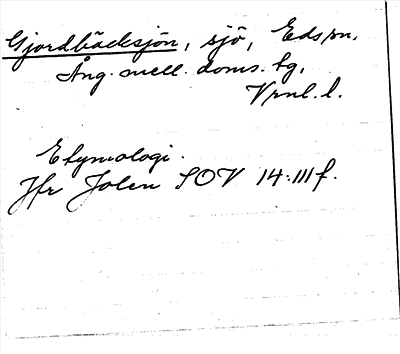 Gjordbäcksjön, sjö, Eds sn,
Ång. mell. doms. bg,
Vrml. l.
Etymologi.
Jfr Jolen SOV 14:111 f.